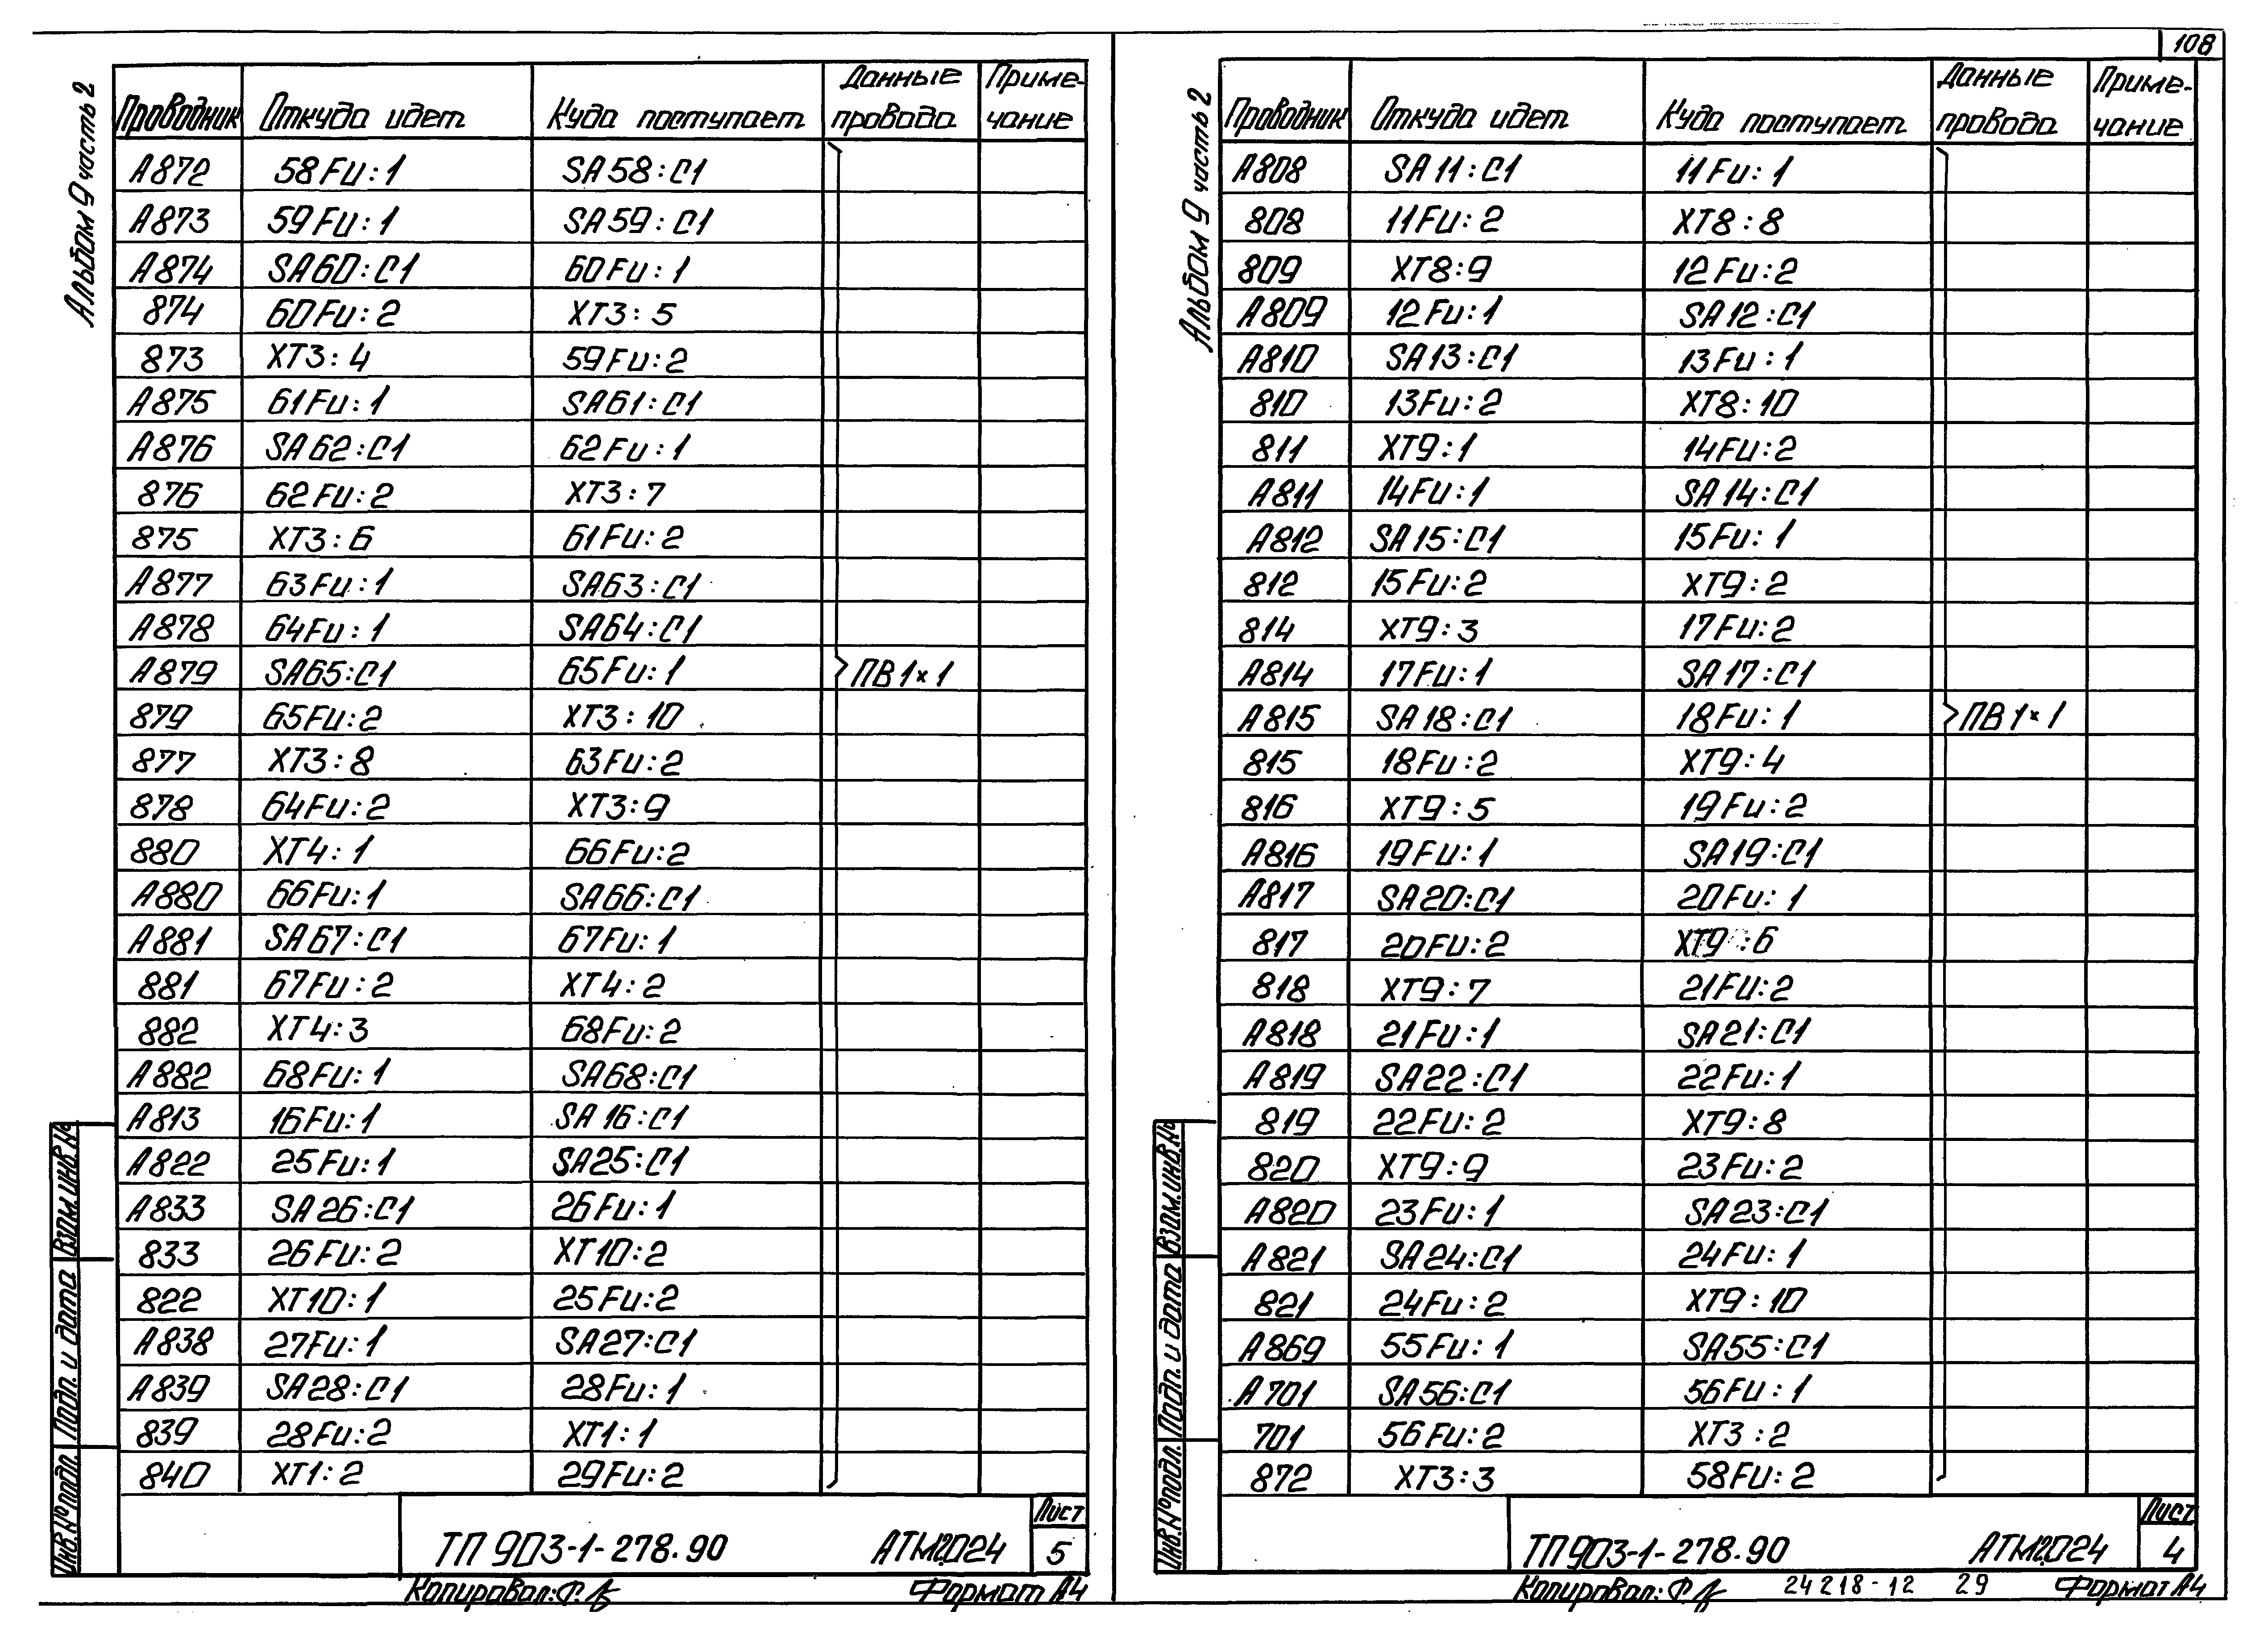 108
Альбом 9 часть 2
Проводник Откуда идет Куда поступает Данные провода Примечание
А872 58Fu:1 SA58:C1
А873 59Fu:1 SA59:C1
А874 SA60:C1 60Fu:1
874 60Fu:2 XT3:5
873 XT3:4 59Fu:2
А875 61Fu:1 SA61:C1
А876 SA62:C1 62Fu:1
876 62Fu:2 XT3:7
875 XT3:6 61Fu:2
А877 63Fu:1 SA63:C1
А878 64Fu:1 SA64:C1
А879 SA65:C1 65Fu:1 ПВ1×1
879 65Fu:2 XT3:10
877 XT3:8 63Fu:2
878 64Fu:2 XT3:9
880 XT4:1 66Fu:2
А880 66Fu:1 SA66:C1
А881 SA67:C1 67Fu:1
881 67Fu:2 XT4:2
882 XT4:3 68Fu:2
А882 68Fu:1 SA68:C1
А813 16Fu:1 SA16:C1
А822 25Fu:1 SA25:C1
А833 SA26:C1 26Fu:1
833 26Fu:2 XT10:2
822 XT10:1 25Fu:2
А838 27Fu:1 SA27:C1
А839 SA28:C1 28Fu:1
839 28Fu:2 XT1:1
840 XT1:2 29Fu:2
Взам.инв.№
Подп. и дата
Инв.№подл.
ТП 903-1-278.90 АТМ2.024 Лист 5
Копировал: Формат А4
Альбом 9 часть 2
Проводник Откуда идет Куда поступает Данные провода Примечание
А808 SA11:C1 11Fu:1
808 11Fu:2 XT8:8
809 XT8:9 12Fu:2
А809 12Fu:1 SA12:C1
А810 SA13:C1 13Fu:1
810 13Fu:2 XT8:10
811 XT9:1 14Fu:2
А811 14Fu:1 SA14:C1
А812 SA15:C1 15Fu:1
812 15Fu:2 XT9:2
814 XT9:3 17Fu:2
А814 17Fu:1 SA17:C1
А815 SA18:C1 18Fu:1 ПВ1×1
815 18Fu:2 XT9:4
816 XT9:5 19Fu:2
А816 19Fu:1 SA19:C1
А817 SA20:C1 20Fu:1
817 20Fu:2 XT9:6
818 XT9:7 21Fu:2
А818 21Fu:1 SA21:C1
А819 SA22:C1 22Fu:1
819 22Fu:2 XT9:8
820 XT9:9 23Fu:2
А820 23Fu:1 SA23:C1
А821 SA24:C1 24Fu:1
821 24Fu:2 XT9:10
А869 55Fu:1 SA55:C1
А701 SA56:C1 56Fu:1
701 56Fu:2 XT3:2
872 XT3:3 58Fu:2
Взам.инв.№
Подп. и дата
Инв.№подл.
ТП 903-1-278.90 АТМ2.024 Лист 4
Копировал: 24218-12 29 Формат А4